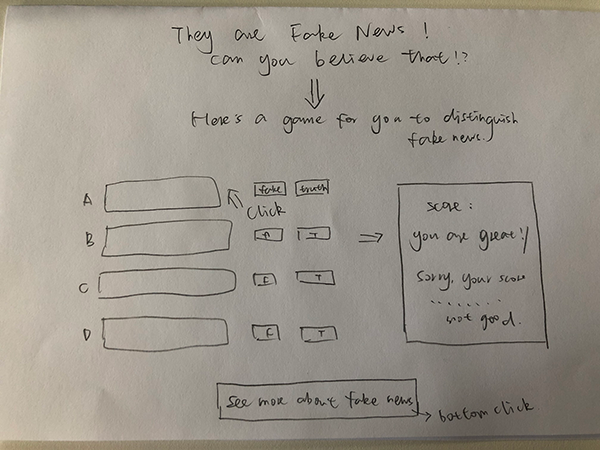 They are Fake News!
can you believe that!?
Here's a game for you to distinguish
fake news.
A
fake
truth
click
B
F
T
C
F
T
D
F
T
score:
you are great!/
sorry, your score
........
not good.
see more about fake news
bottom click